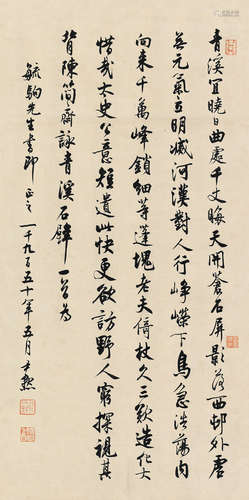 青溪宜曉日曲處千丈晦天開蒼石屏影落西邨外虛
無元氣立明滅河漢對人行崢嶸下鳥急浩蕩內
向來千萬峰鎖細等蓬塊老夫倚杖久三歎造化大
惜哉太史公意短遺此快更欲訪野人窮探視其
背陳簡齋詠青溪石壁一首為
毓駒先生書即正之一千九百五十年五月尹默